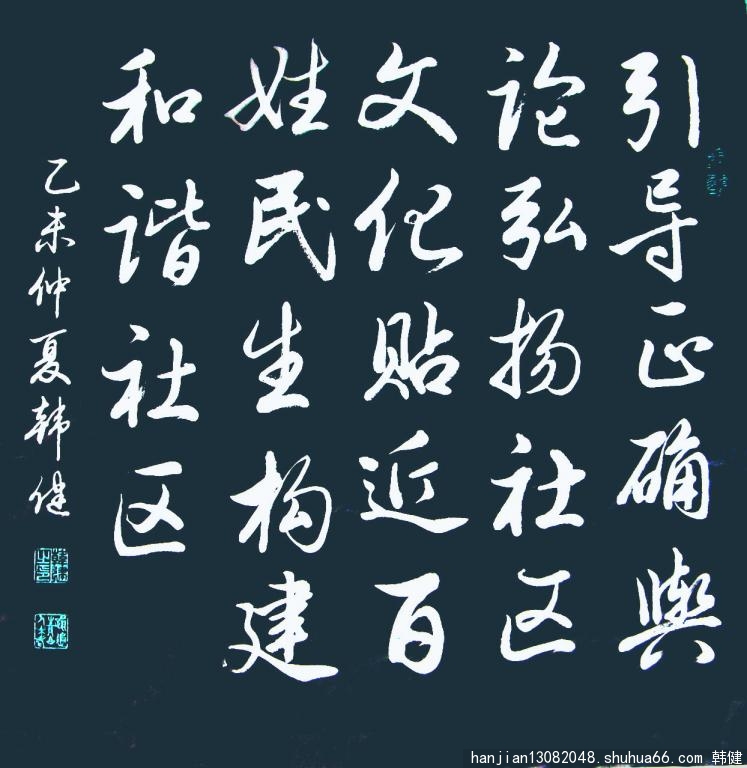 引导正确舆
论弘扬社区
文化贴近百
姓民生构建
和谐社区
乙未仲夏韩健
hanjian13082048.shuhua66.com 韩健